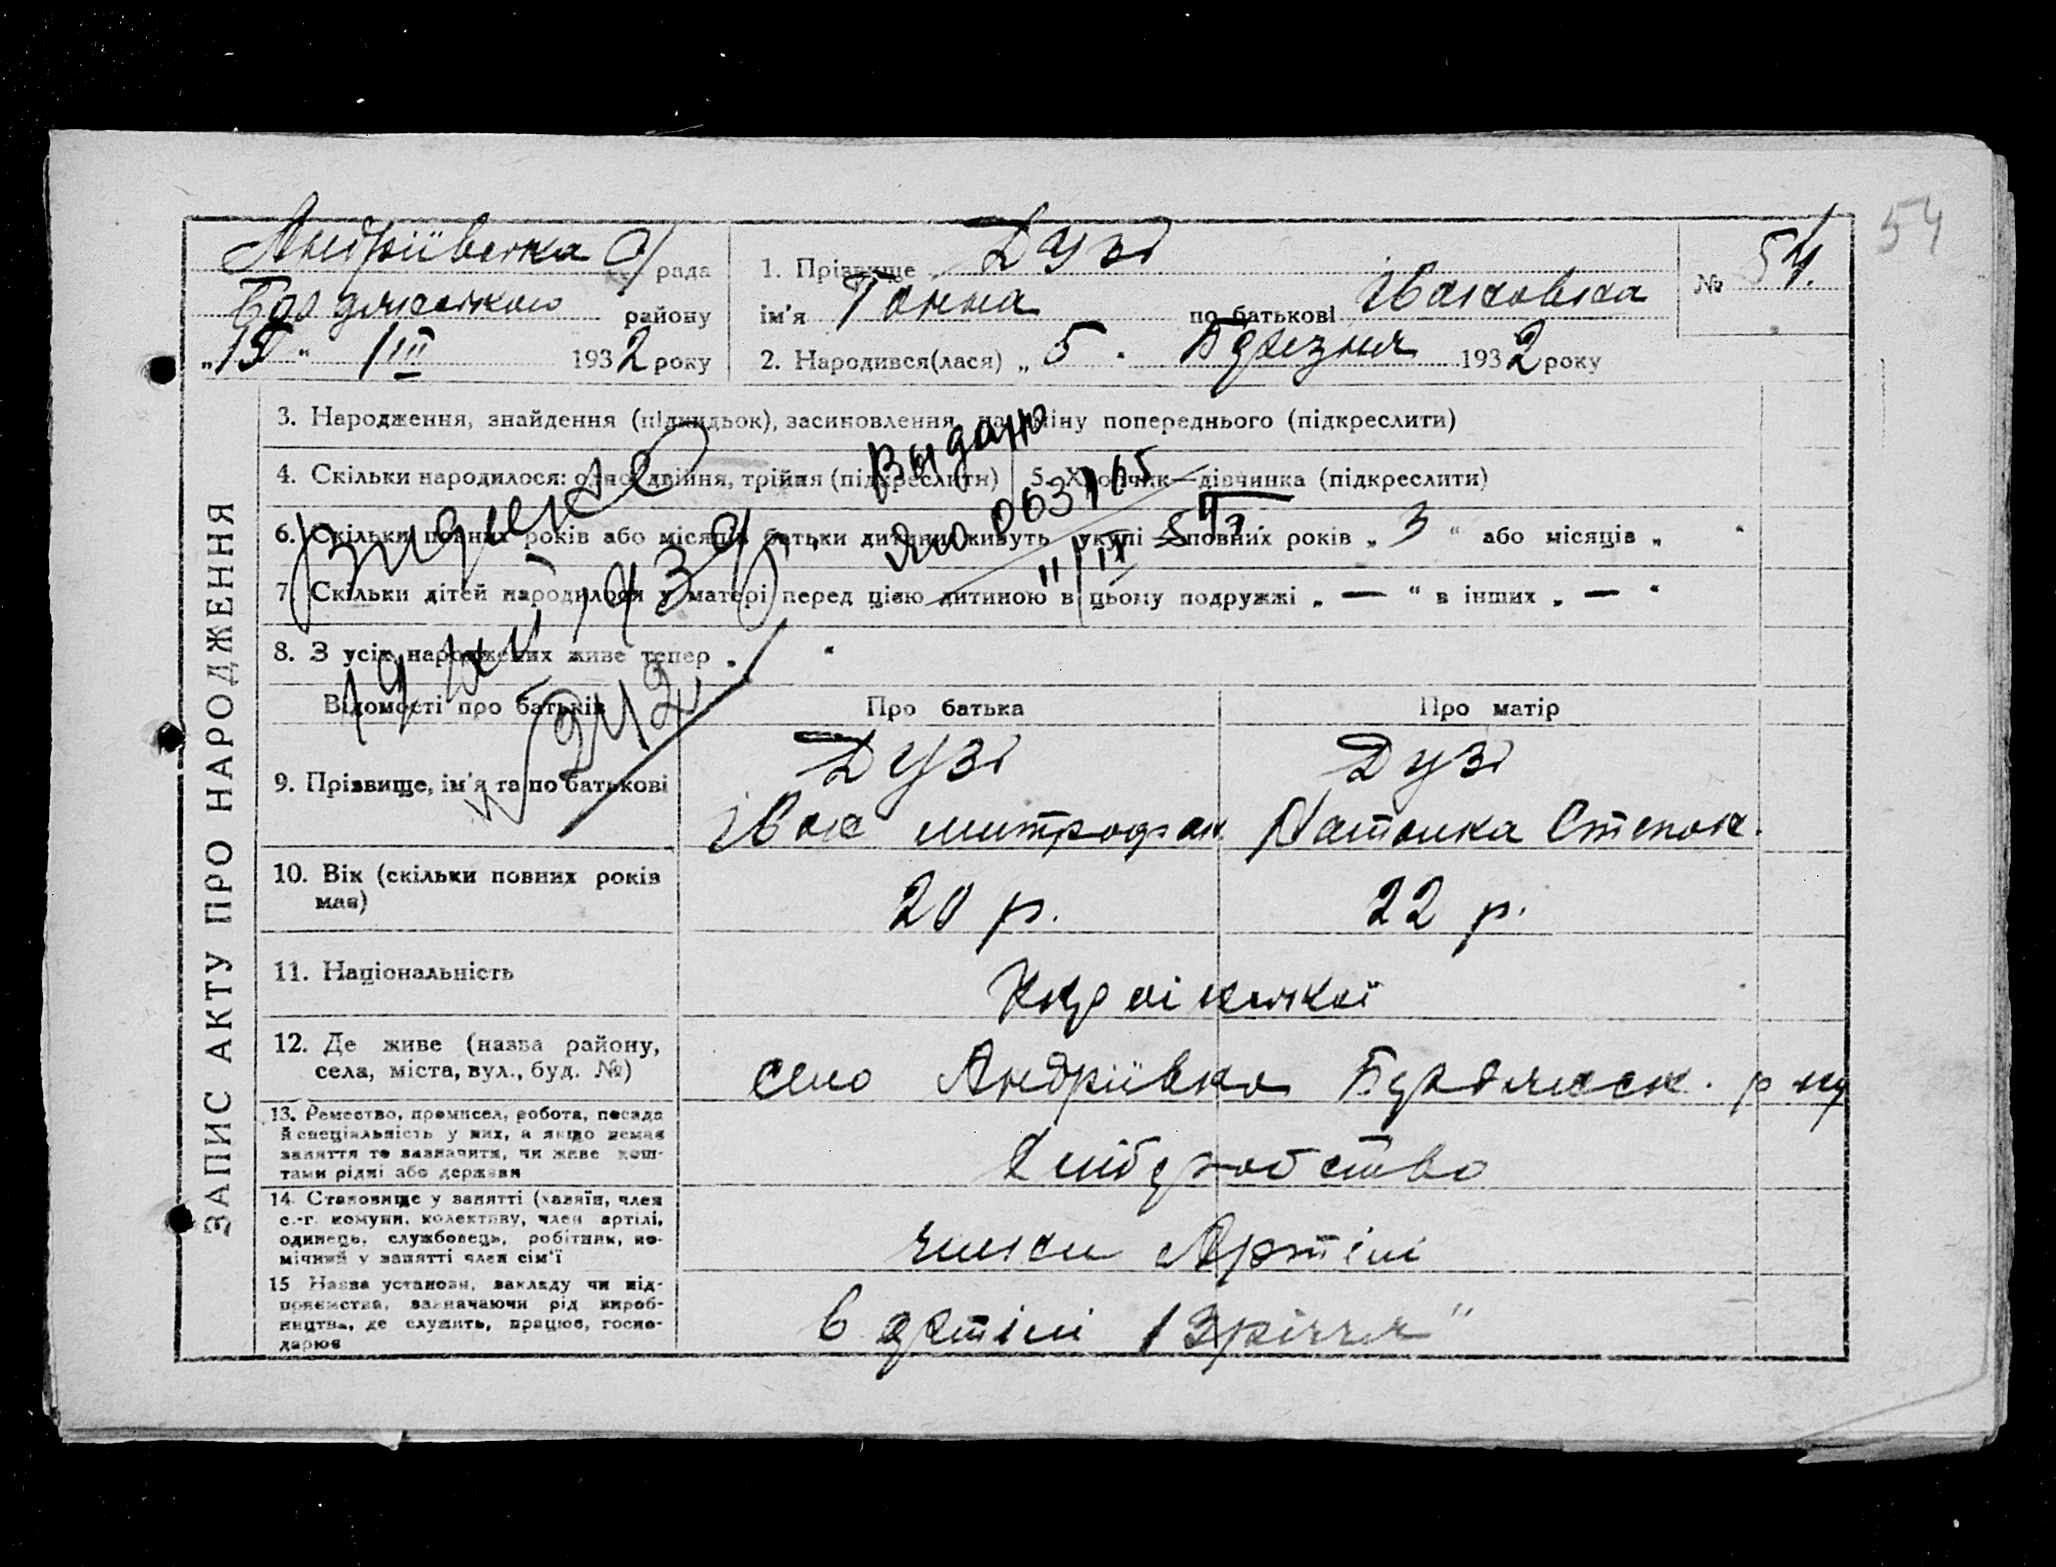 Андріївська С/рада
Бердянського району
„15“ III 1932 року
1. Прізвище Дузь
ім'я Ганна по батькові Івановна
2. Народився(лася) „5. Березня 1932 року
№ 54.
54
ЗАПИС АКТУ ПРО НАРОДЖЕННЯ
3. Народження, знайдення (підкидьок), засиновлення, на зміну попереднього (підкреслити)
4. Скільки народилося: одно, двійня, трійня (підкреслити) 5. Хлопчик—дівчинка (підкреслити)
6. Скільки повних років або місяців батьки дитини живуть укупі повних років „ 3 “ або місяців „ “
7. Скільки дітей народилося у матері перед цією дитиною в цьому подружжі „ — “ в інших „ — “
8. З усіх народжених живе тепер „ “
Выдано
063165
1939
242
Відомості про батьків Про батька Про матір
9. Прізвище, ім'я та по батькові
Дузь Дузь
Іван митрофан Степан.
10. Вік (скільки повних років має)
20 р. 22 р.
11. Національність
Українські
12. Де живе (назва району, села, міста, вул., буд. №)
село Андріївка Бердянськ. р-ну
13. Ремество, промисел, робота, посада й спеціальність у них, а якщо немає заняття то зазначити, чи живе коштами рідні або держави
Хліборобство
14. Становище у занятті (хазяїн, член с.-г. комуни, колективу, член артілі, одинець, службовець, робітник, помічний у занятті член сім'ї
члени Артілі
15 Назва установи, закладу чи підприємства, зазначаючи рід виробництва, де служить, працює, господарює
в артілі 13 річчя"